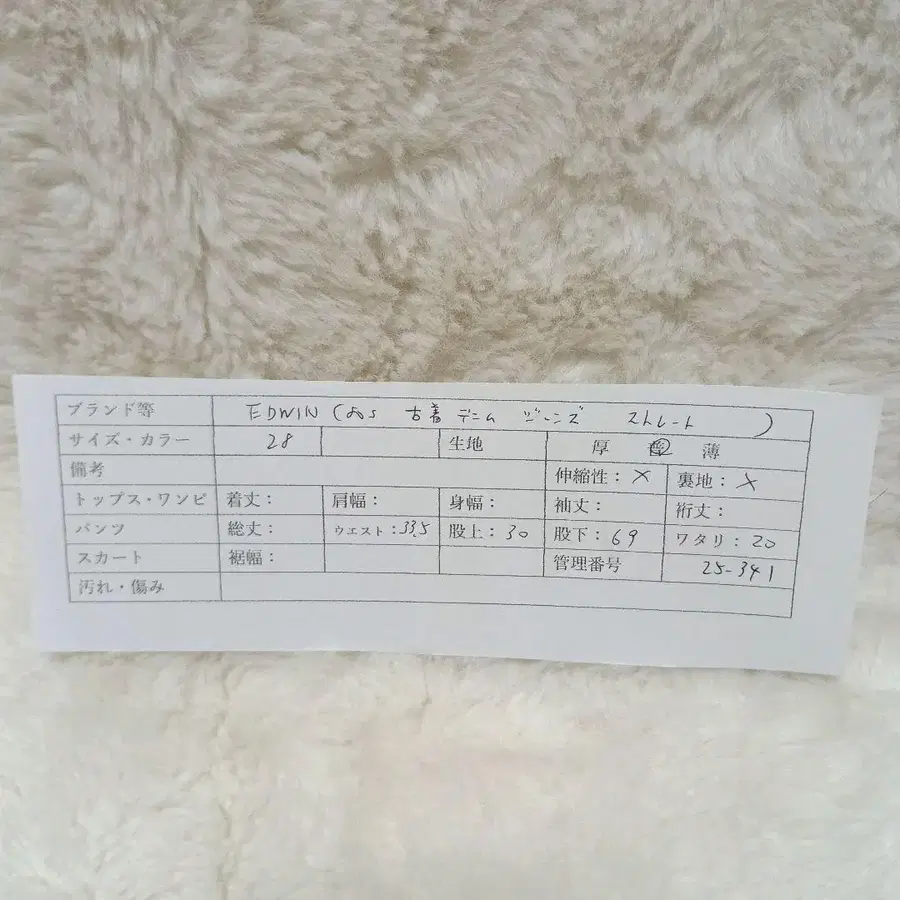 ブランド等 EDWIN ( 古着 デニム ジーンズ ストレート )
サイズ・カラー 28 生地 厚 薄
備考 伸縮性：× 裏地：×
トップス・ワンピ 着丈： 肩幅： 身幅： 袖丈： 裄丈：
パンツ 総丈： ウエスト：33.5 股上：30 股下：69 ワタリ：20
スカート 裾幅： 管理番号 25-341
汚れ・傷み